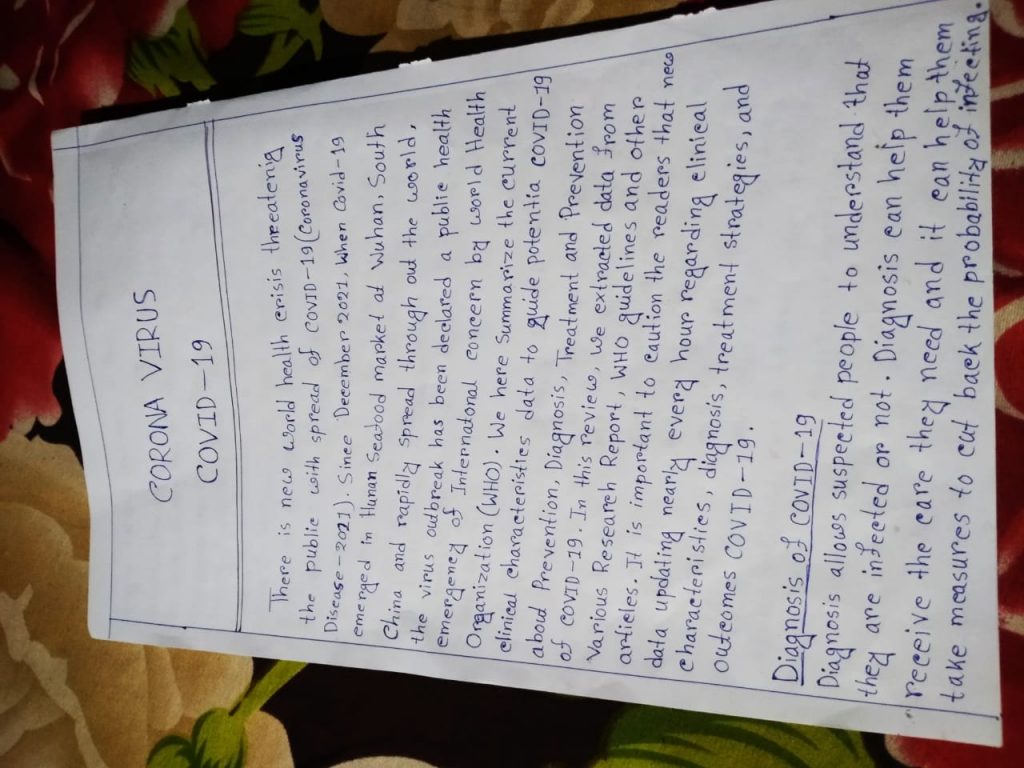 CORONA VIRUS
COVID-19
There is new world health crisis threatenig
the public with spread of COVID-19 (Coronavirus
Disease-2021). Since December 2021, When Covid-19
emerged in Hunan Seafood market at Wuhan, South
China and rapidly spread through out the world,
the virus outbreak has been declared a public health
emergency of Internatonal concern by world Health
Organization (WHO). We here Summarize the current
clinical characteristics data to guide potentia COVID-19
aboud Prevention, Diagnosis, Treatment and Prevention
of COVID-19. In this review, we extracted data from
Various Research Report, WHO guidelines and other
articles. It is important to caution the readers that new
data updating nearly every hour regarding clinical
characteristics, diagnosis, treatment strategies, and
outcomes COVID-19.
Diagnosis of COVID-19
Diagnosis allows suspected people to understand that
they are infected or not. Diagnosis can help them
receive the care they need and it can help them
take measures to cut back the probability of infecting.